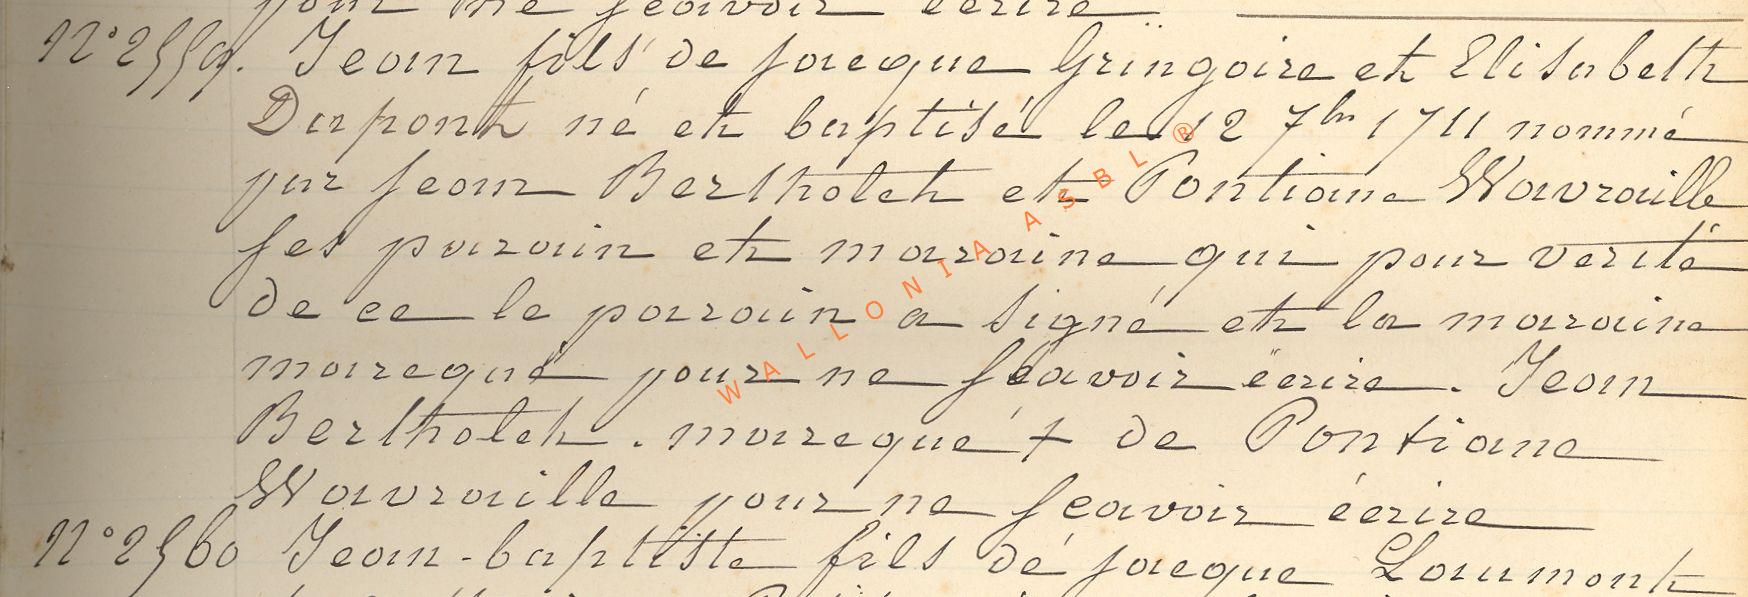 pour ne sçavoir écrire
N° 2559. Jean fils de jacque Gringoire et Elisabeth
Dupont né et baptisé le 12 7br 1711 nommé
par jean Bertholet et Pontiane Wavraille
ses parain et maraine qui pour verité
de ce le parain a signé et la maraine
marequé pour ne sçavoir ecrire. Jean
Bertholet. marequé + de Pontiane
Wavraille pour ne sçavoir écrire
N° 2560 Jean-baptiste fils de jacque Laumont
WALLONIA ASBL ®